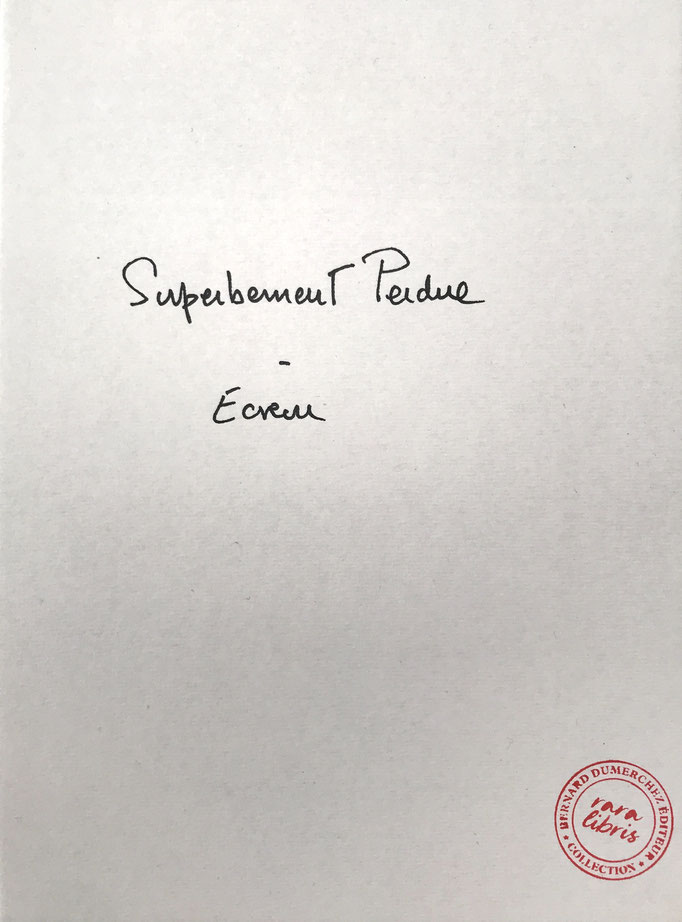 Superbement Perdue
-
Écrem
BERNARD DUMERCHEZ ÉDITEUR
rara
libris
* COLLECTION *